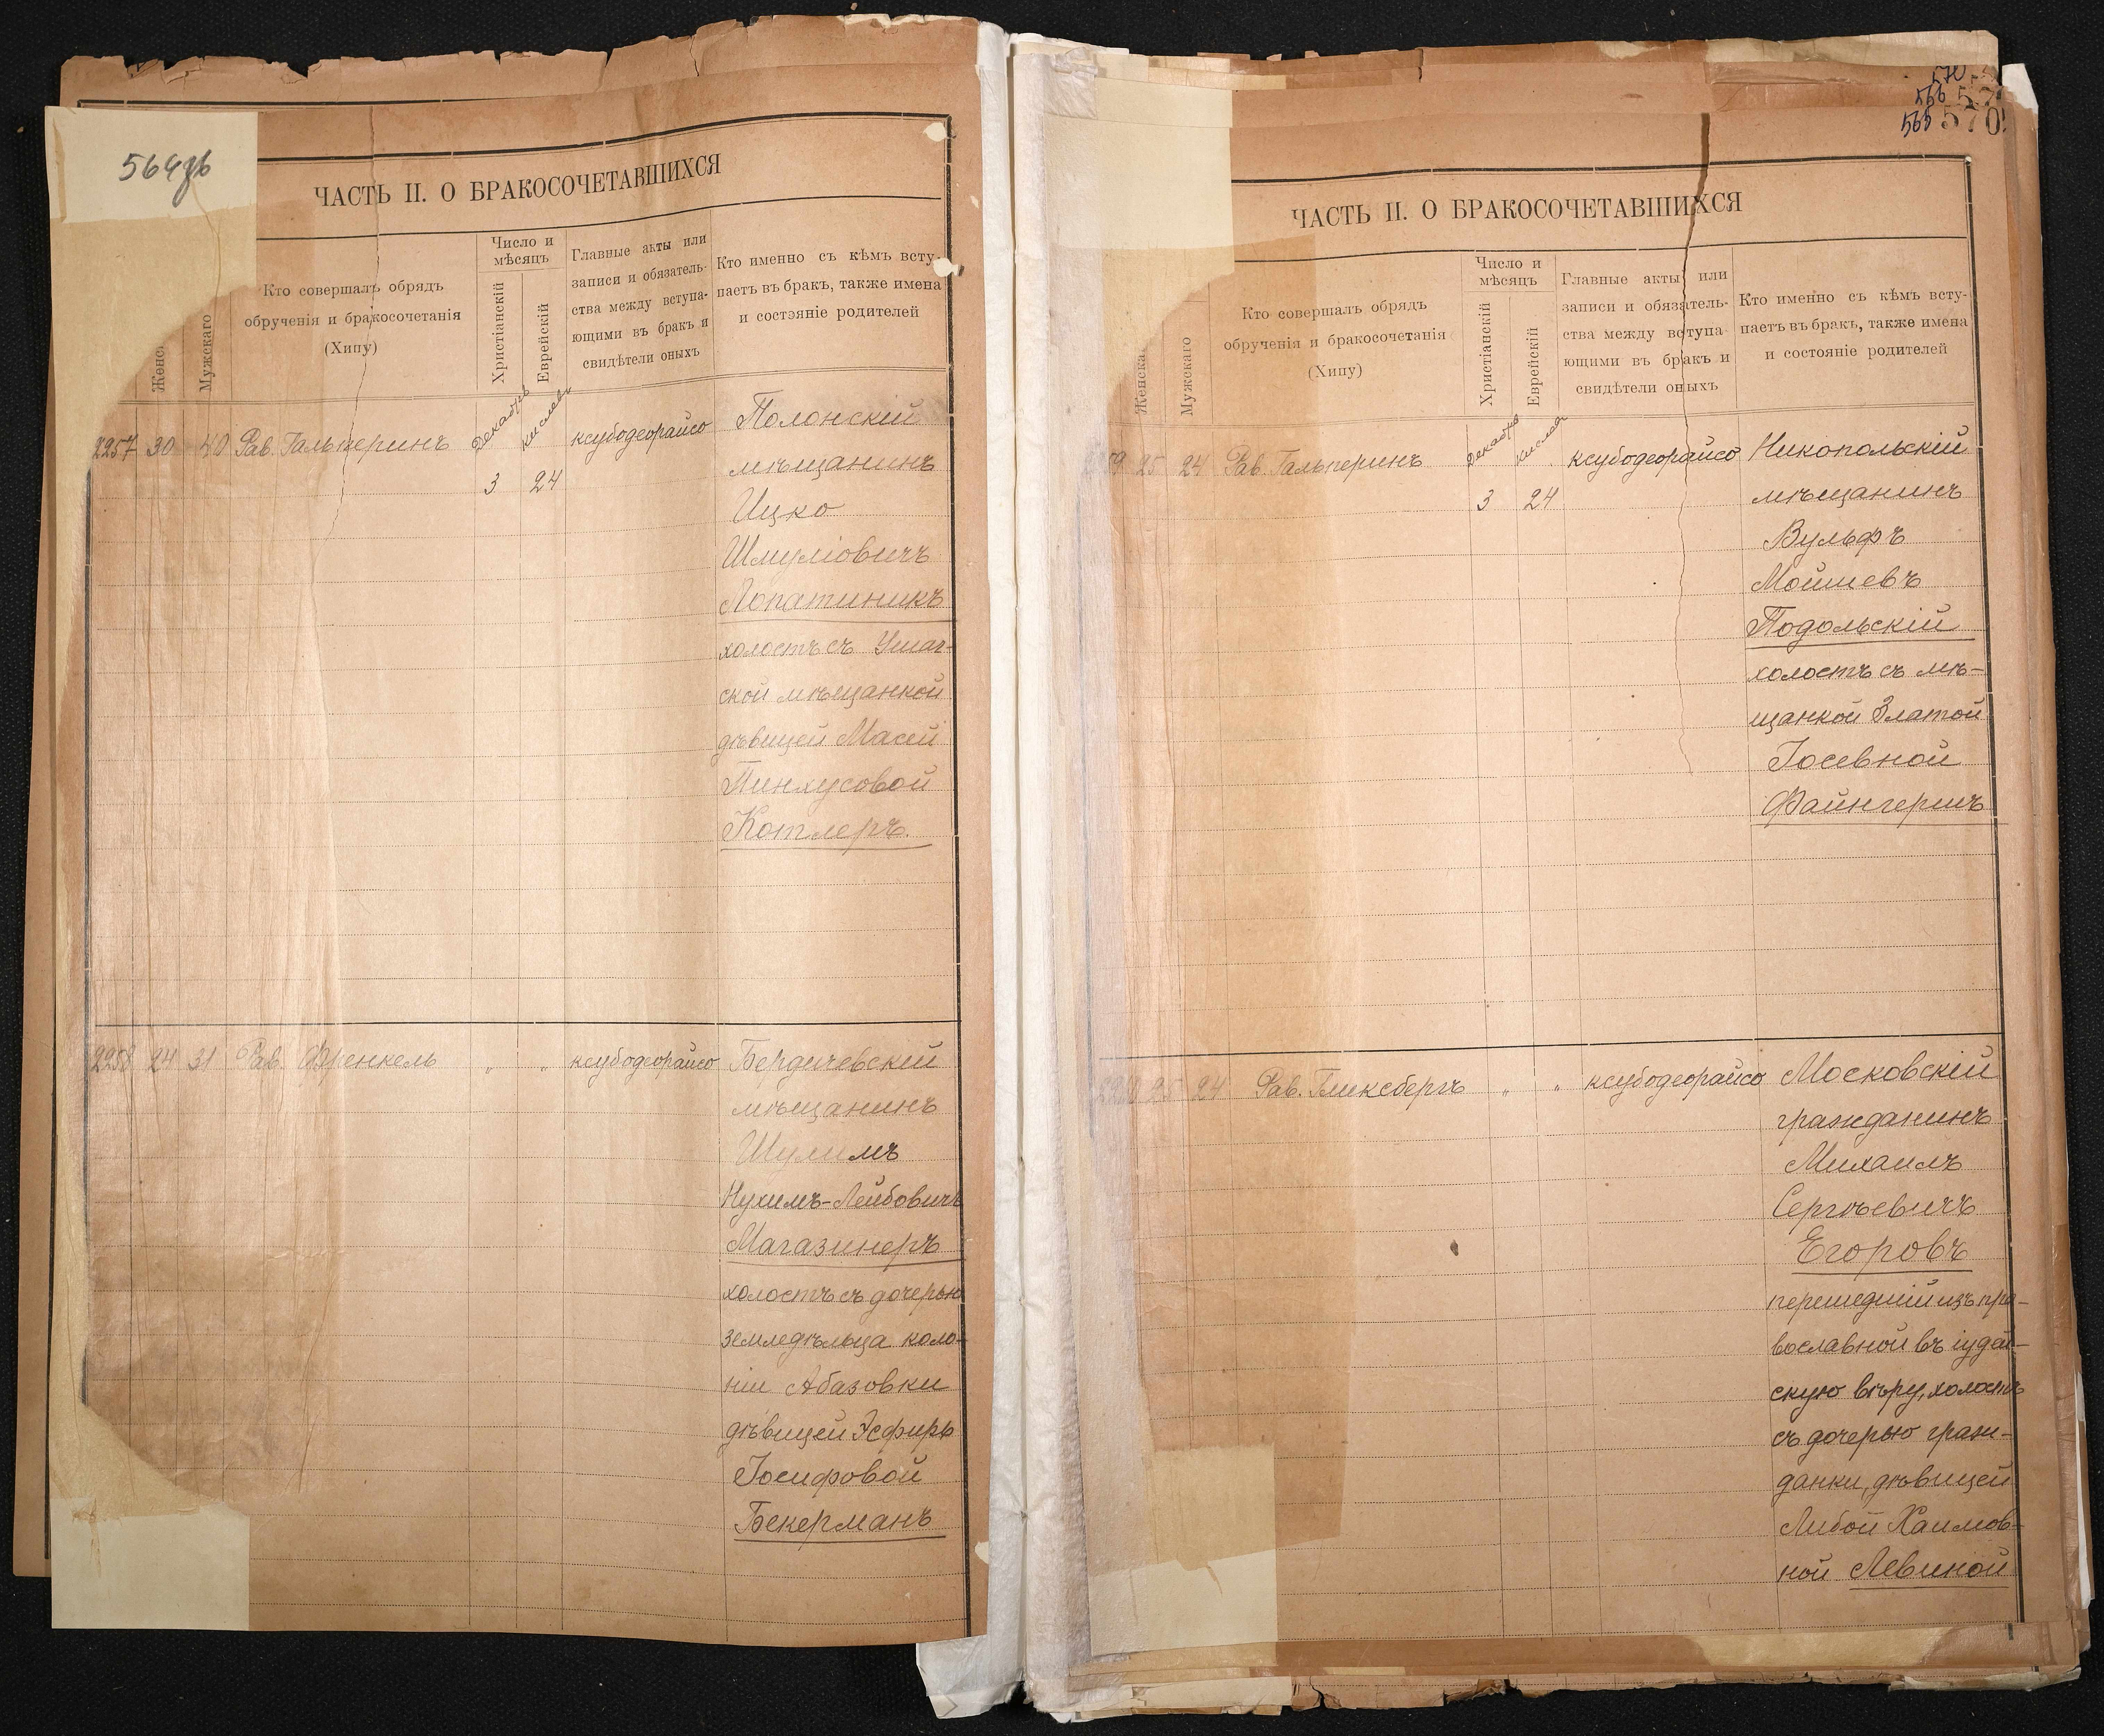 564
ЧАСТЬ II. О БРАКОСОЧЕТАВШИХСЯ
Мужскаго
Кто совершалъ обрядъ
обрученія и бракосочетанія
(Хипу)
Число и
мѣсяцъ
Христіанскій
Еврейскій
Главные акты или
записи и обязатель-
ства между вступа-
ющими въ бракъ и
свидѣтели оныхъ
Кто именно съ кѣмъ всту-
паетъ въ бракъ, также имена
и состояніе родителей
2257 30 40 Рав. Гальперинъ
Декабрь
3
кислевъ
24
ксубодеорайсо
Полонскій
мѣщанинъ
Ицко
Шмуліовичъ
Лопатникъ
холостъ съ Ушач-
ской мѣщанкой
дѣвицей Масей
Пинхусовой
Котлеръ.
2258 24 31 Рав. Френкель " " ксубодеорайсо
Бердичевскій
мѣщанинъ
Шулимъ
Нухимъ-Лейбовичъ
Магазинеръ
холостъ съ дочерью
земледѣльца коло-
ніи Абазовки
дѣвицей Эсфирь
Іосифовой
Бекерманъ
570
566
565 570
ЧАСТЬ II. О БРАКОСОЧЕТАВШИХСЯ
Мужскаго
Кто совершалъ обрядъ
обрученія и бракосочетанія
(Хипу)
Число и
мѣсяцъ
Христіанскій
Еврейскій
Главные акты или
записи и обязатель-
ства между вступа-
ющими въ бракъ и
свидѣтели оныхъ
Кто именно съ кѣмъ всту-
паетъ въ бракъ, также имена
и состояніе родителей
25 24 Рав. Гальперинъ
Декабрь
3
кислевъ
24
ксубодеорайсо
Никопольскій
мѣщанинъ
Вульфъ
Мойшевъ
Подольскій
холостъ съ мѣ-
щанкой Златой
Іосевной
Файнгершъ
25 24 Рав. Гликсбергъ " " ксубодеорайсо
Московскій
гражданинъ
Михаилъ
Сергѣевичъ
Егоровъ
перешедшій изъ пра-
вославной въ іудей-
скую вѣру, холостъ
съ дочерью граж-
данки, дѣвицей
Либой Хаимов-
ной Левиной